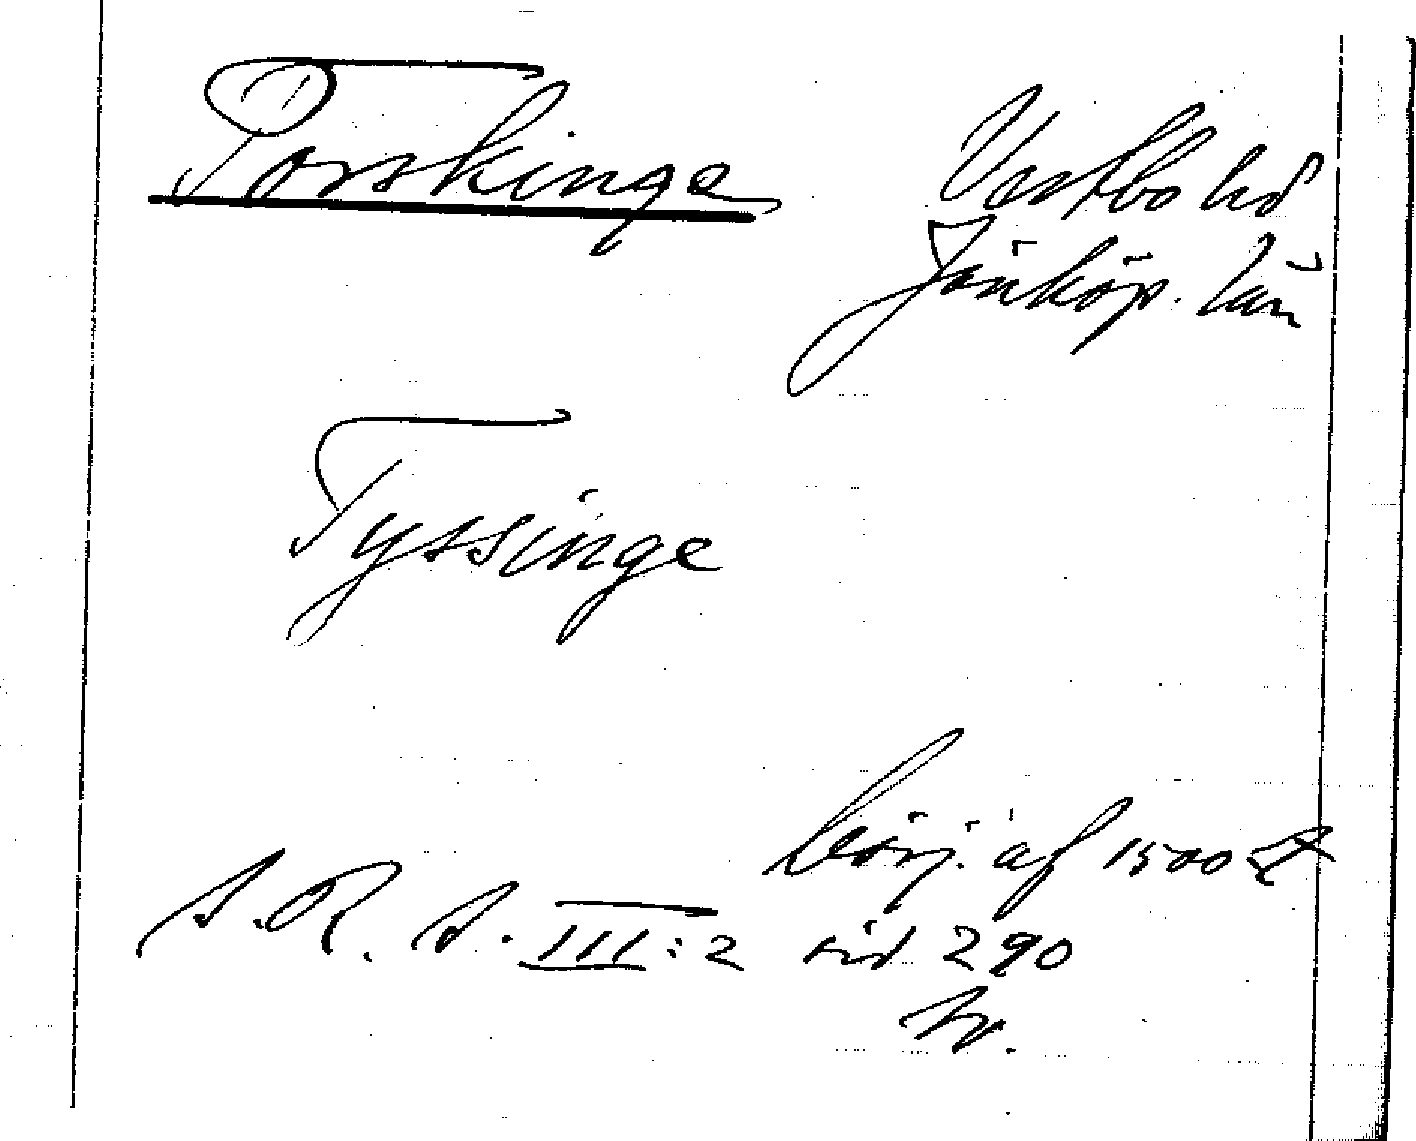 Torskinge
Vestbo hd
Jönköp. län
Tyssinge
börj. af 1500 t
S. R. S. III : 2 sid 290